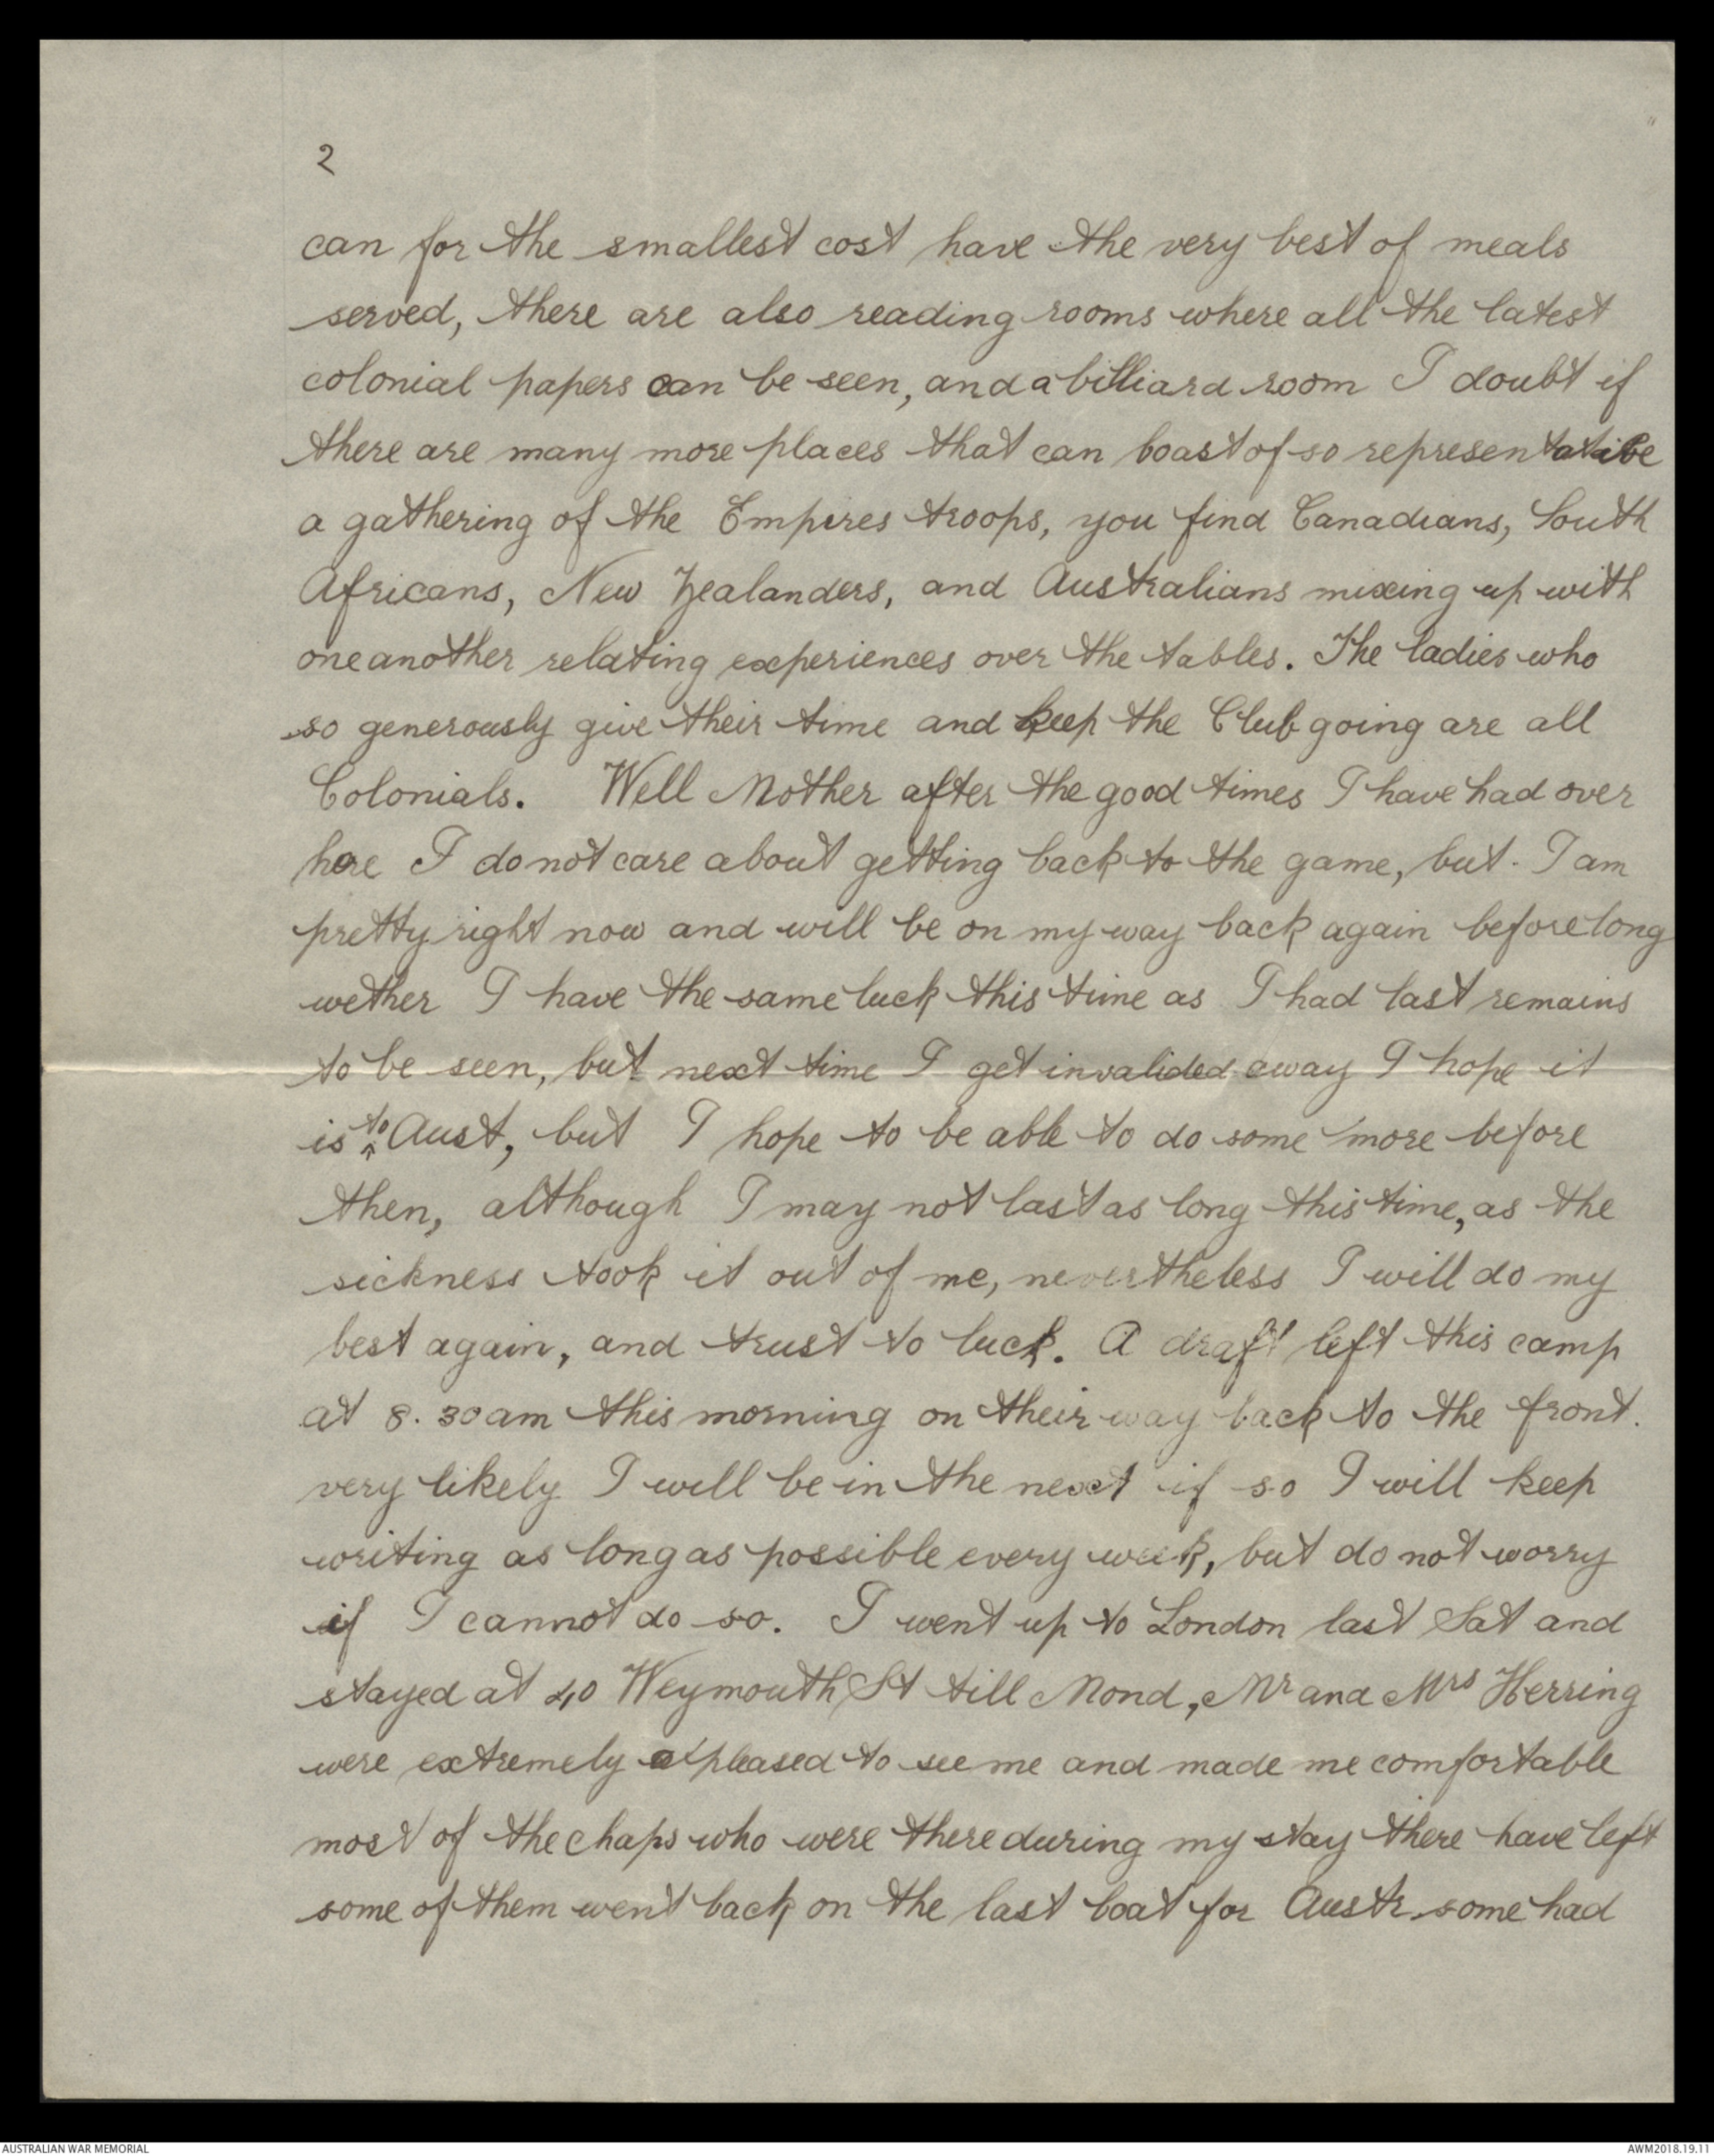 2
can for the smallest cost have the very best of meals
served, there are also reading rooms where all the latest
colonial papers can be seen, and a billiard room I doubt if
there are many more places that can boast of so representative
a gathering of the Empires troops, you find Canadians, South
Africans, New Zealanders, and Australians mixing up with
one another relating experiences over the tables. The ladies who
so generously give their time and keep the Club going are all
Colonials. Well Mother after the good times I have had over
here I do not care about getting back to the game, but. I am
pretty right now and will be on my way back again before long
wether I have the same luck this time as I had last remains
to be seen, but next time I get invalided away I hope it
is to Aust, but I hope to be able to do some more before
then, although I may not last as long this time, as the
sickness took it out of me, nevertheless I will do my
best again, and trust to luck. A draft left this camp
at 8.30am this morning on their way back to the front.
very likely I will be in the next if so I will keep
writing as long as possible every week, but do not worry
if I cannot do so. I went up to London last Sat and
stayed at 40 Weymouth St till Mond, Mr and Mrs Herring
were extremely pleased to see me and made me comfortable
most of the chaps who were there during my stay there have left
some of them went back on the last boat for Austr some had
AUSTRALIAN WAR MEMORIAL
AWM2018.19.11